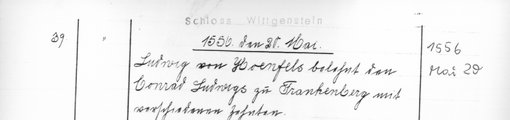 Schloss Wittgenstein
39 " 1556. den 20. Mai. 1556
Ludwig von Hoenfels belehnt den Mai 20
Conrad Ludwigs zu Frankenberg mit
verschiedenen Zehnten.